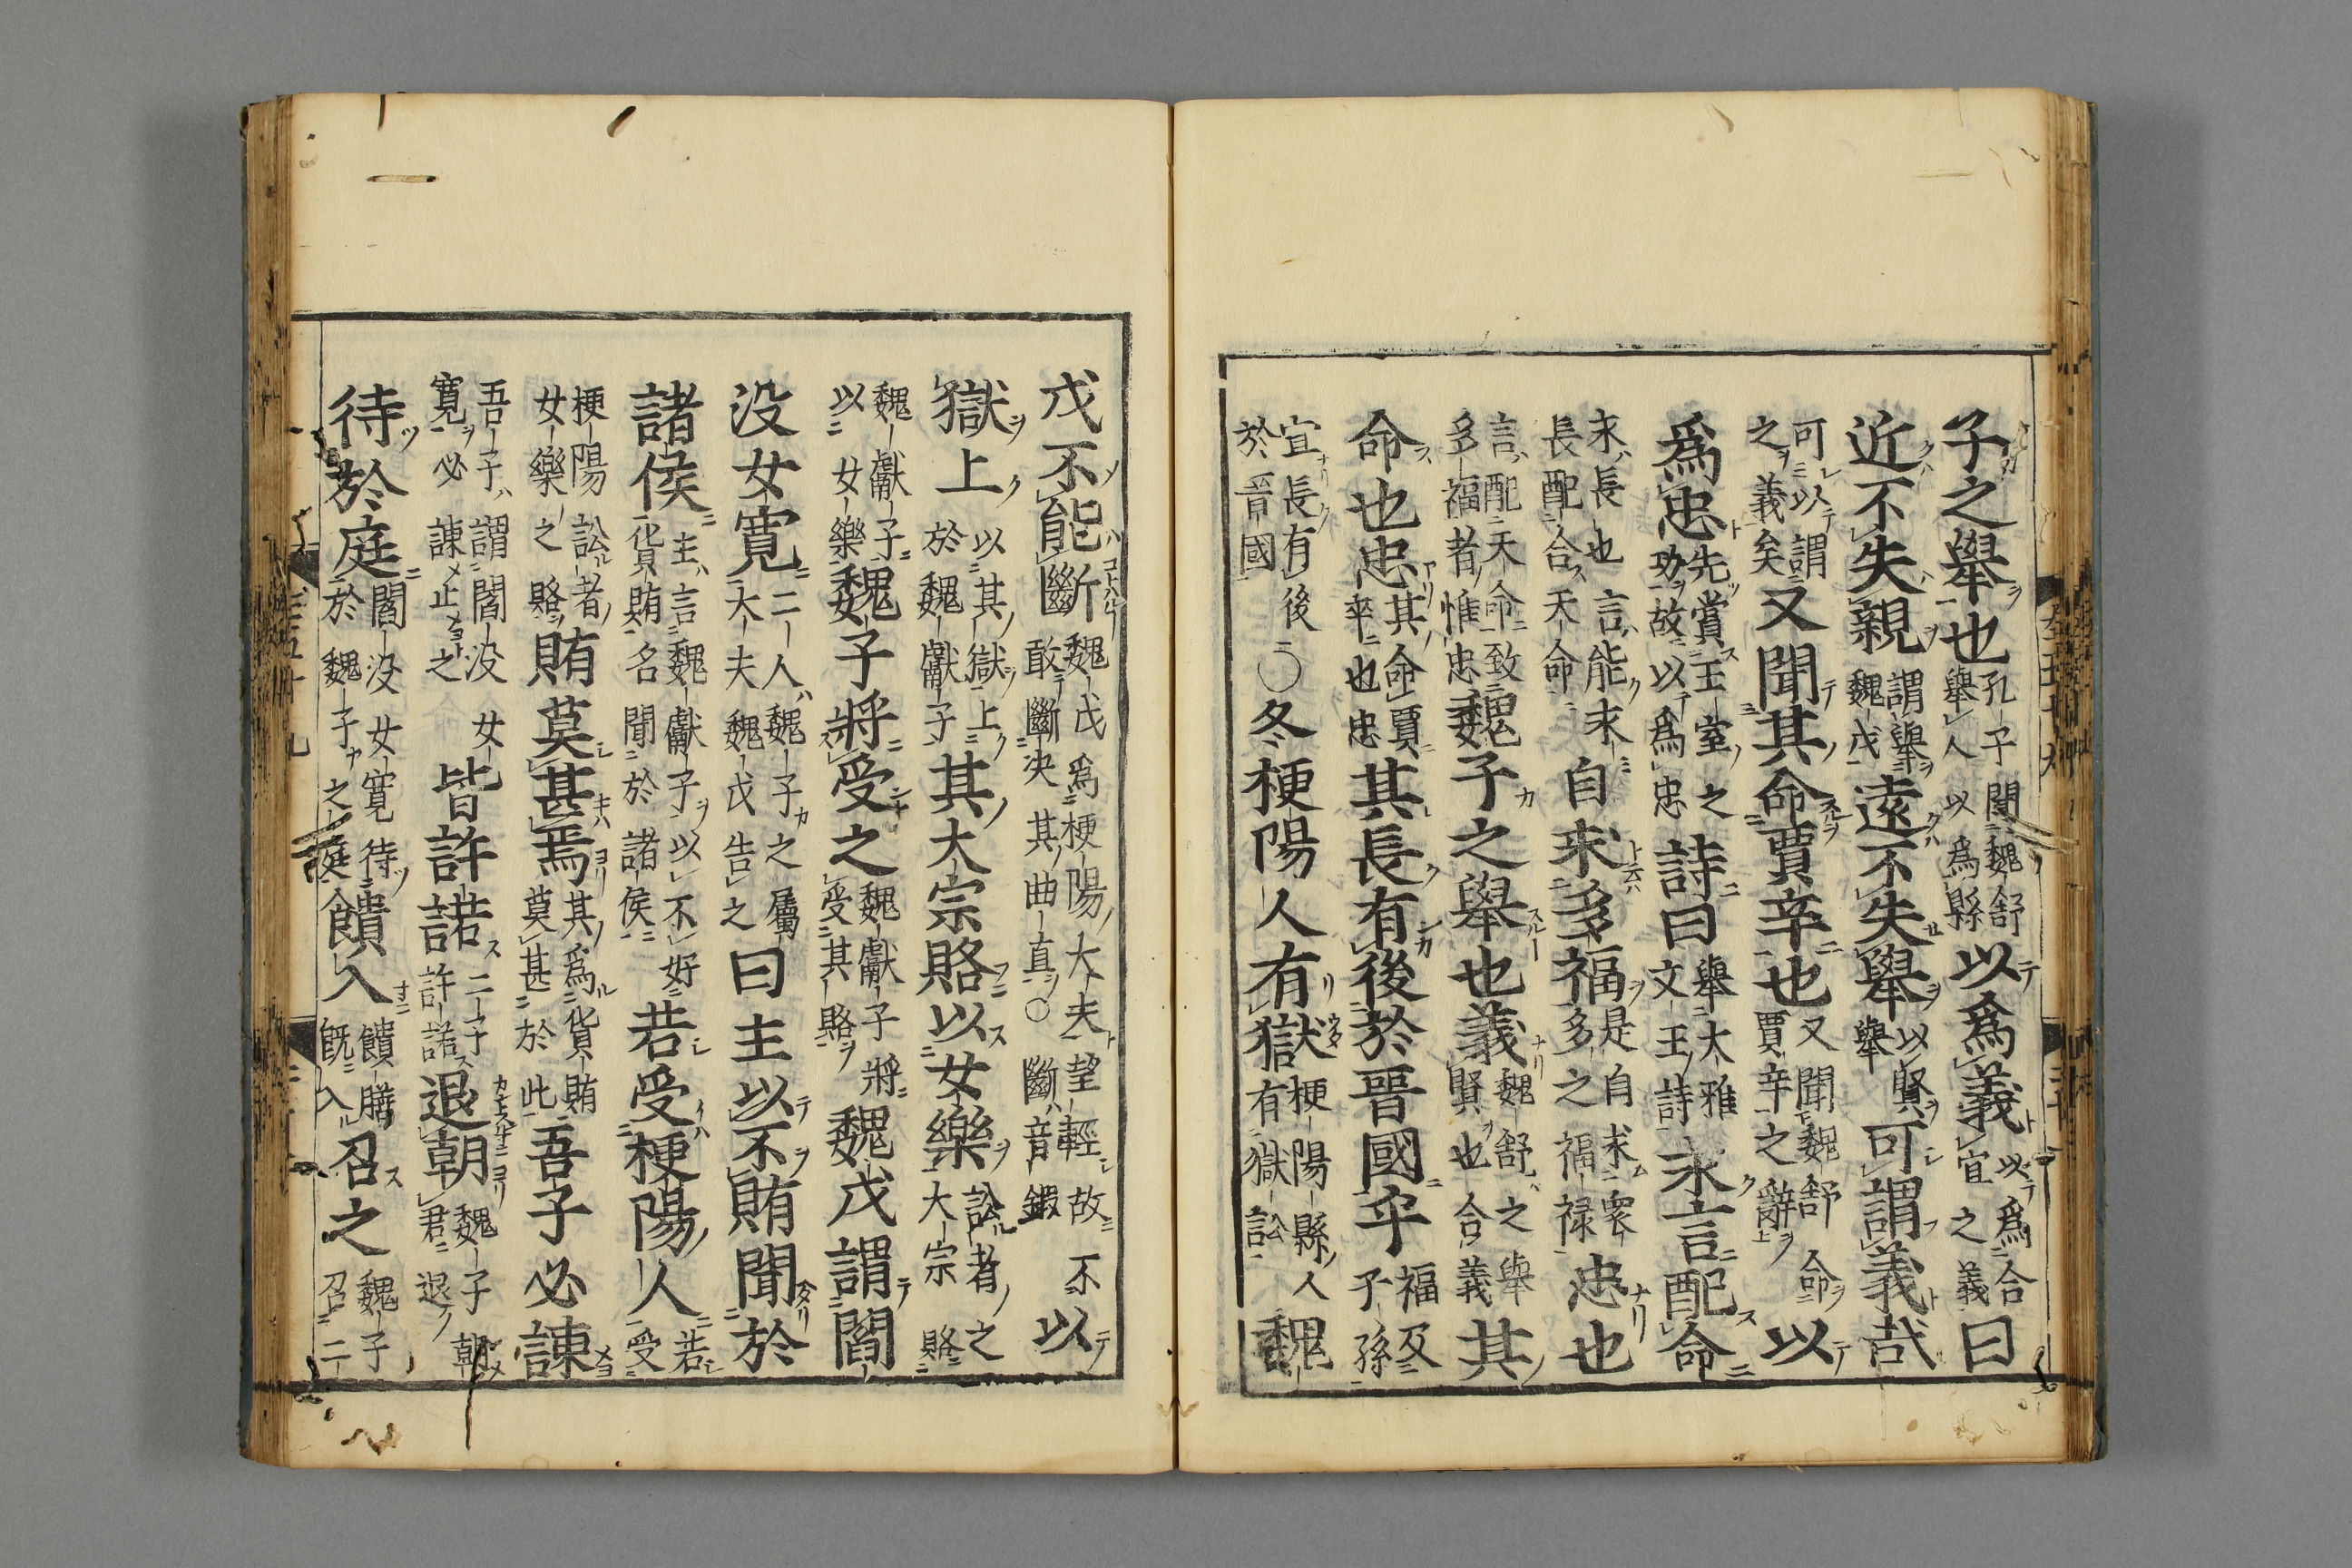 子之舉也孔子聞魏舒舉人以爲縣以爲義以爲合宜之義曰
近不失親謂舉魏戊遠不失舉以賢舉可謂義哉
可以謂之義矣又聞其命賈辛也又聞魏舒命賈辛之辭以
爲忠先賞王室之功故以爲忠詩曰舉大雅文王詩永言配命
永長也言能永長配合天命自求多福是自求衆多之福禄忠也
言配天命致多福者惟忠魏子之舉也義魏舒之舉賢也合義其
命也忠其命賈辛也忠其長有後於晉國乎福及子孫
宜長有後於晉國○冬梗陽人有獄梗陽縣人有獄訟魏
戊不能斷魏戊爲梗陽大夫望輕故不敢斷決其曲直○斷音鍛以
獄上以其獄上於魏獻子其大宗賂以女樂訟者之大宗賂
魏獻子以女樂魏子將受之魏獻子將受其賂魏戊謂閻
没女寛二人魏子之屬大夫魏戊告之曰主以不賄聞於
諸侯主言魏獻子以不好貨賄名聞於諸侯若受梗陽人若受
梗陽訟者女樂之賂賄莫甚焉其爲貨賄莫甚於此吾子必諫
吾子謂閻没女寛必諫止之皆許諾二子許諾退朝魏子朝君退
待於庭閻没女寛待於魏子之庭饋入饋膳既入召之魏子召二